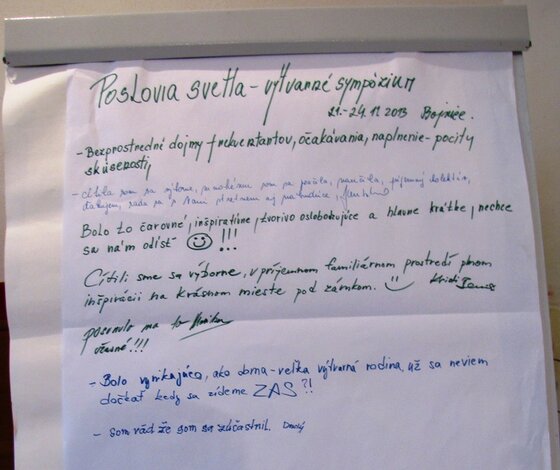 Poslovia svetla - výtvarné sympózium
21.-24.11.2013 Bojnice.
- Bezprostredné dojmy frekventantov, očakávania, naplnenie - pocity
skúsenosti,
- cítila som sa výborne, mnohému som sa
ďakujem, rada sa s Vami stretnem aj
Bolo to čarovné, inšpiratívne, tvorivo oslobodzujúce a hlavne krátke, nechce
sa nám odísť !!!
Cítili sme sa výborne, v príjemnom familiárnom prostredí plnom
inšpirácii na krásnom mieste pod zámkom.
posunulo ma to
úžasné!!!
- Bolo vynikajúco, ako doma - veľká výtvarná rodina, už sa neviem
dočkať kedy sa zídeme ZAS?!
- som rád že som sa zúčastnil.